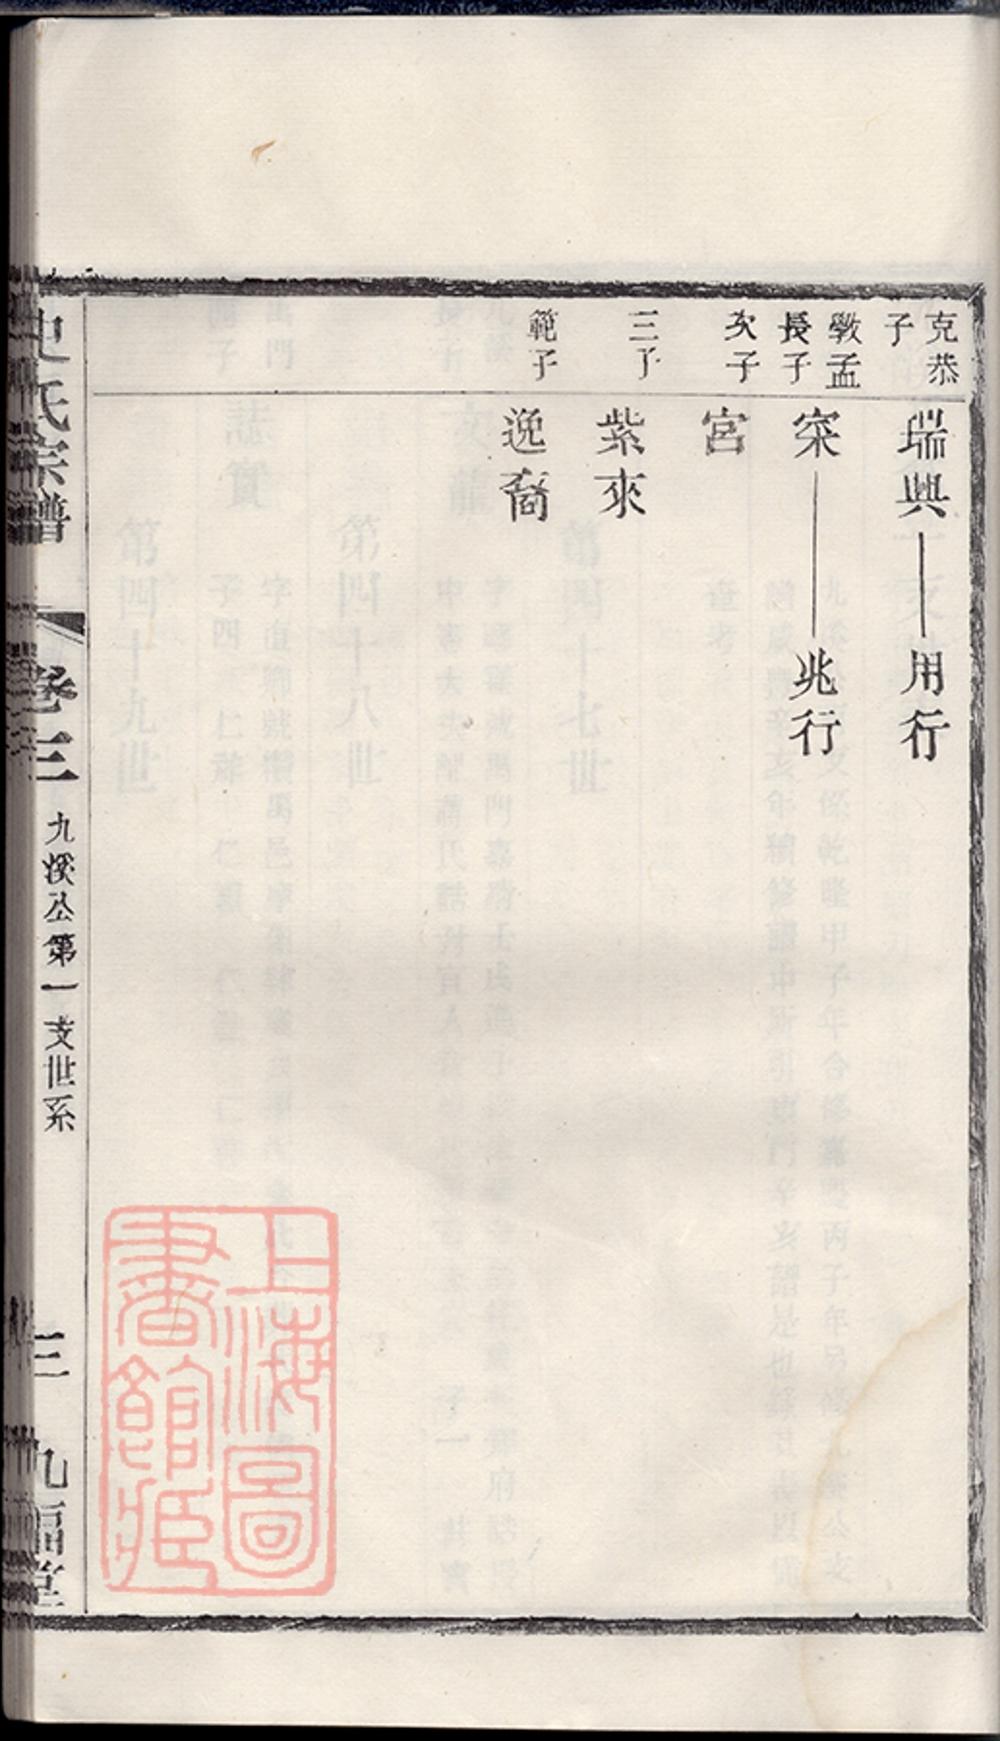 克恭
子
瑞興
用行
敩孟
長子
寀
兆行
次子
宮
三子
紫來
範子
逸裔
史氏宗譜
卷三
九溪公第一支世系
三
九福堂
上海圖
書館藏